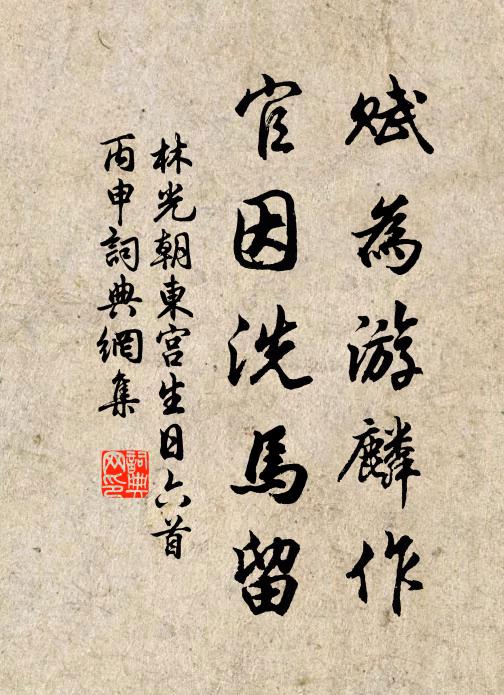 賦為游麟作
官因洗馬留
林光朝東宮生日六首
丙申詞典網集
詞典网印